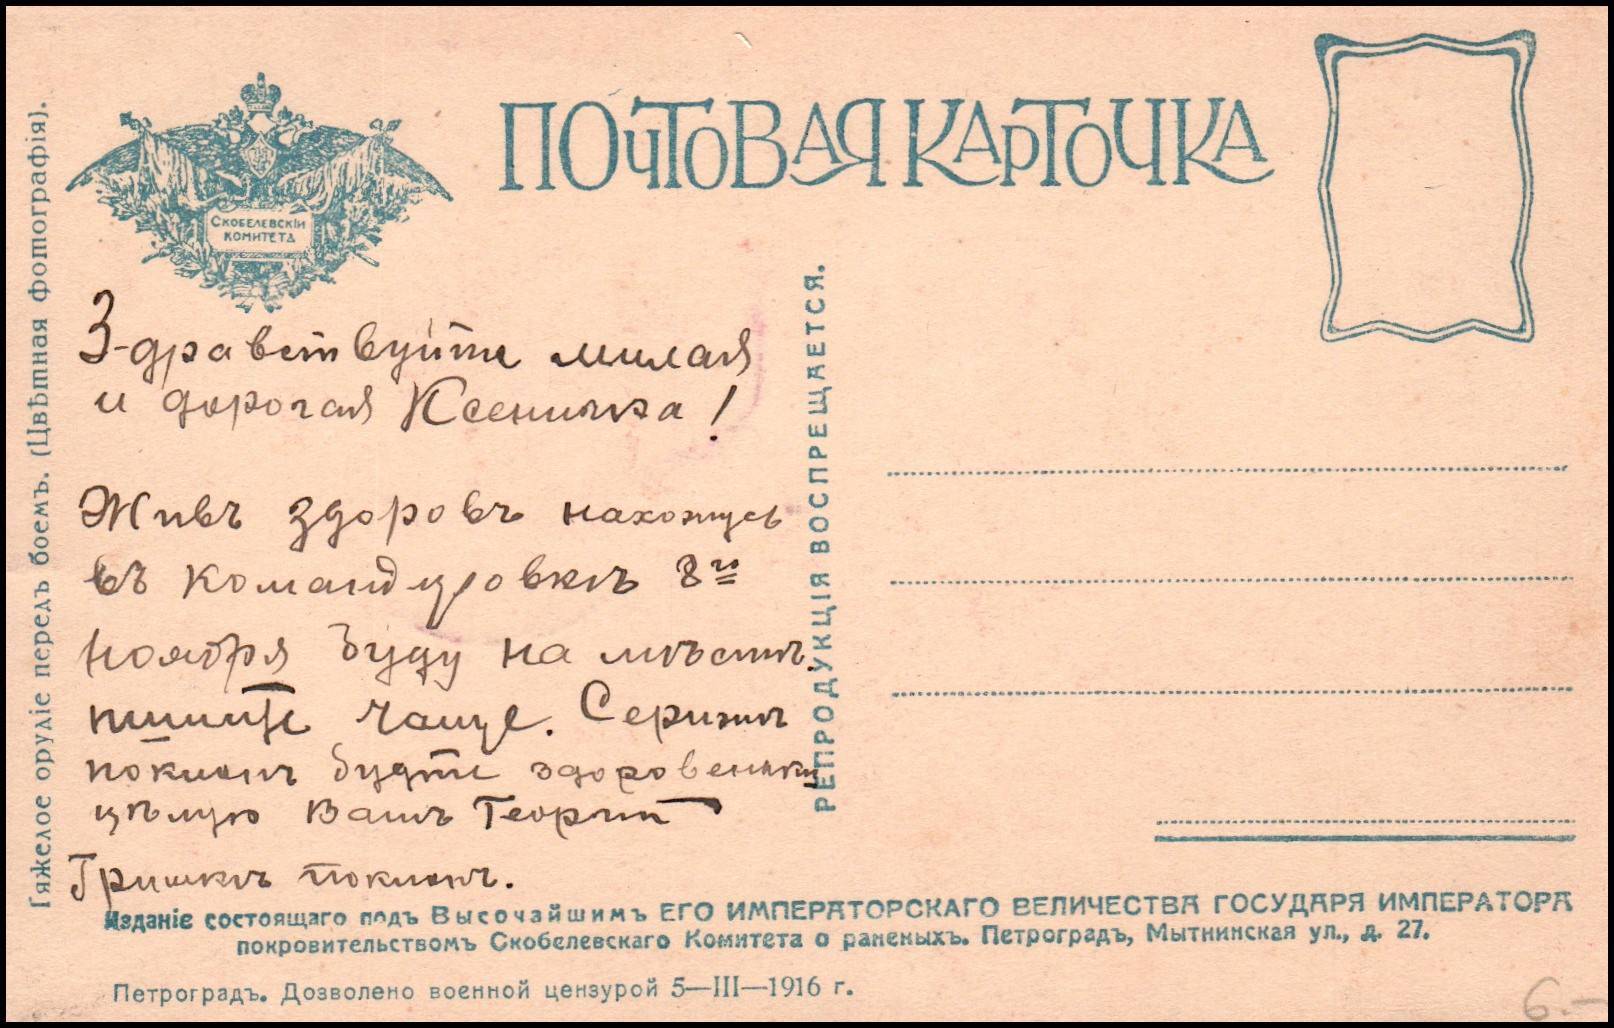 ПОЧТОВАЯ КАРТОЧКА
СКОБЕЛЕВСКІЙ
КОМИТЕТЪ
Тяжелое орудіе передъ боемъ. (Цвѣтная фотографія).
Здравствуйте милая
и дорогая Ксеничка!
Живъ здоровъ нахожусь
въ командировкѣ 8го
ноября буду на мѣстѣ.
пишите чаще. Сережѣ
поклонъ будте здоровеньки
цѣлую Вашъ Георгий
Гришкѣ поклонъ.
РЕПРОДУКЦІЯ ВОСПРЕЩАЕТСЯ.
Изданіе состоящаго подъ Высочайшимъ ЕГО ИМПЕРАТОРСКАГО ВЕЛИЧЕСТВА ГОСУДАРЯ ИМПЕРАТОРА
покровительствомъ Скобелевскаго Комитета о раненыхъ. Петроградъ, Мытнинская ул., д. 27.
Петроградъ. Дозволено военной цензурой 5—III—1916 г.
6.—